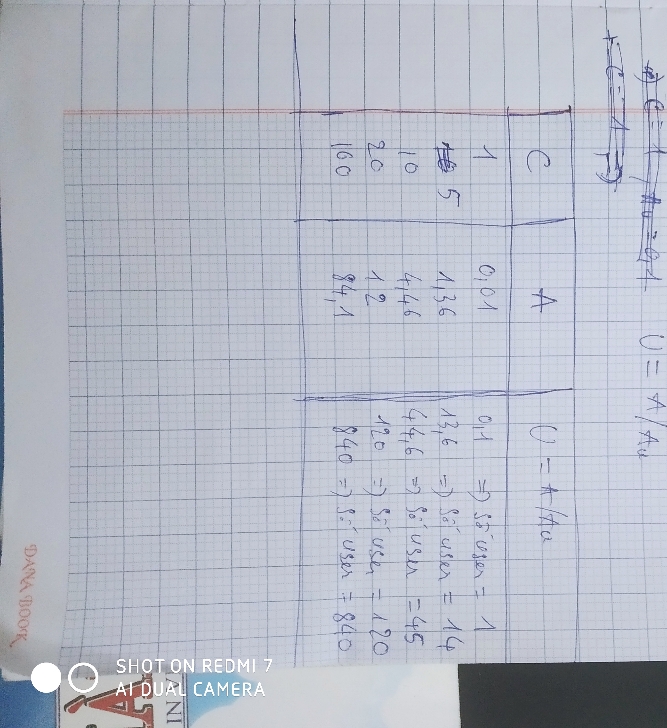 a) C = 1, Au = 0,1 U = A/Au
+ C = 1 =>
C A U = A/Au
1 0,01 0,1 => số user = 1
5 1,36 13,6 => số user = 14
10 4,46 44,6 => số user = 45
20 12 120 => số user = 120
100 84,1 840 => số user = 840
DANA BOOK
SHOT ON REDMI 7
AI DUAL CAMERA
IN VA